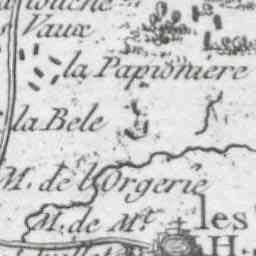 Vaux
la Papioniere
la Bele
M. de l'Orgerie
M. de Mt.
les
H.